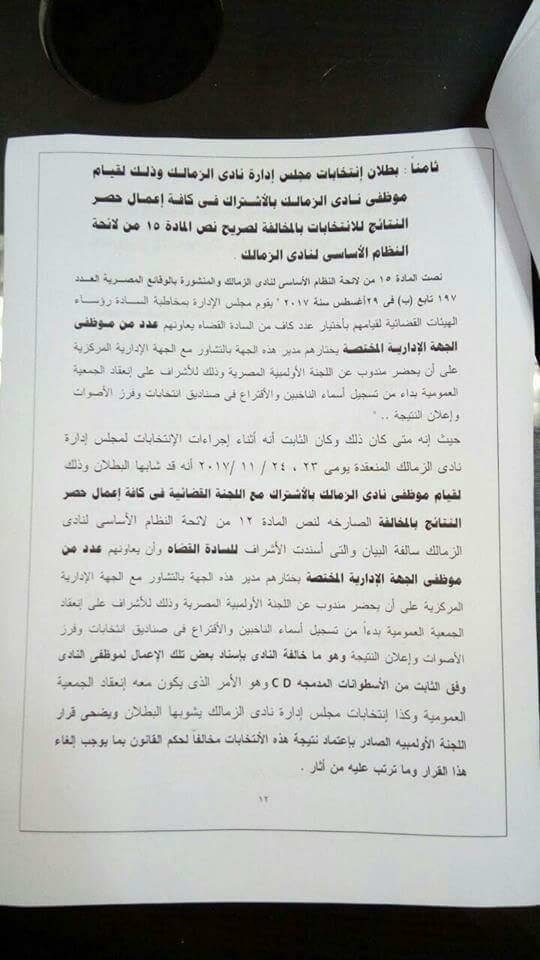 ثامناً : بطلان إنتخابات مجلس إدارة نادى الزمالك وذلك لقيام
موظفى نادى الزمالك بالأشتراك فى كافة إعمال حصر
النتائج للانتخابات بالمخالفة لصريح نص المادة ١٥ من لائحة
النظام الأساسى لنادى الزمالك .
نصت المادة ١٥ من لائحة النظام الأساسى لنادى الزمالك والمنشورة بالوقائع المصرية العدد
١٩٧ تابع (ب) فى ٢٩أغسطس سنة ٢٠١٧ " يقوم مجلس الإدارة بمخاطبة السادة رؤساء
الهيئات القضائية لقيامهم بأختيار عدد كاف من السادة القضاه يعاونهم عدد من موظفى
الجهة الإدارية المختصة يختارهم مدير هذه الجهة بالتشاور مع الجهة الإدارية المركزية
على أن يحضر مندوب عن اللجنة الأولمبية المصرية وذلك للأشراف على إنعقاد الجمعية
العمومية بداء من تسجيل أسماء الناخبين والأقتراع فى صناديق انتخابات وفرز الأصوات
وإعلان النتيجة .. "
حيث إنه متى كان ذلك وكان الثابت أنه أثناء إجراءات الإنتخابات لمجلس إدارة
نادى الزمالك المنعقدة يومى ٢٣ ، ٢٤ / ١١ /٢٠١٧ أنه قد شابها البطلان وذلك
لقيام موظفى نادى الزمالك بالأشتراك مع اللجنة القضائية فى كافة إعمال حصر
النتائج بالمخالفة الصارخه لنص المادة ١٢ من لائحة النظام الأساسى لنادى
الزمالك سالفة البيان والتى أسندت الأشراف للسادة القضاه وأن يعاونهم عدد من
موظفى الجهة الإدارية المختصة يختارهم مدير هذه الجهة بالتشاور مع الجهة الإدارية
المركزية على أن يحضر مندوب عن اللجنة الأولمبية المصرية وذلك للأشراف على إنعقاد
الجمعية العمومية بدءاً من تسجيل أسماء الناخبين والأقتراع فى صناديق انتخابات وفرز
الأصوات وإعلان النتيجة وهو ما خالفة النادى بإسناد بعض تلك الإعمال لموظفى النادى
وفق الثابت من الأسطوانات المدمجه CD وهو الأمر الذى يكون معه إنعقاد الجمعية
العمومية وكذا إنتخابات مجلس إدارة نادى الزمالك يشوبها البطلان ويضحى قرار
اللجنة الأولمبيه الصادر بإعتماد نتيجة هذه الأنتخابات مخالفاً لحكم القانون بما يوجب إلغاء
هذا القرار وما ترتب عليه من أثار .
١٢